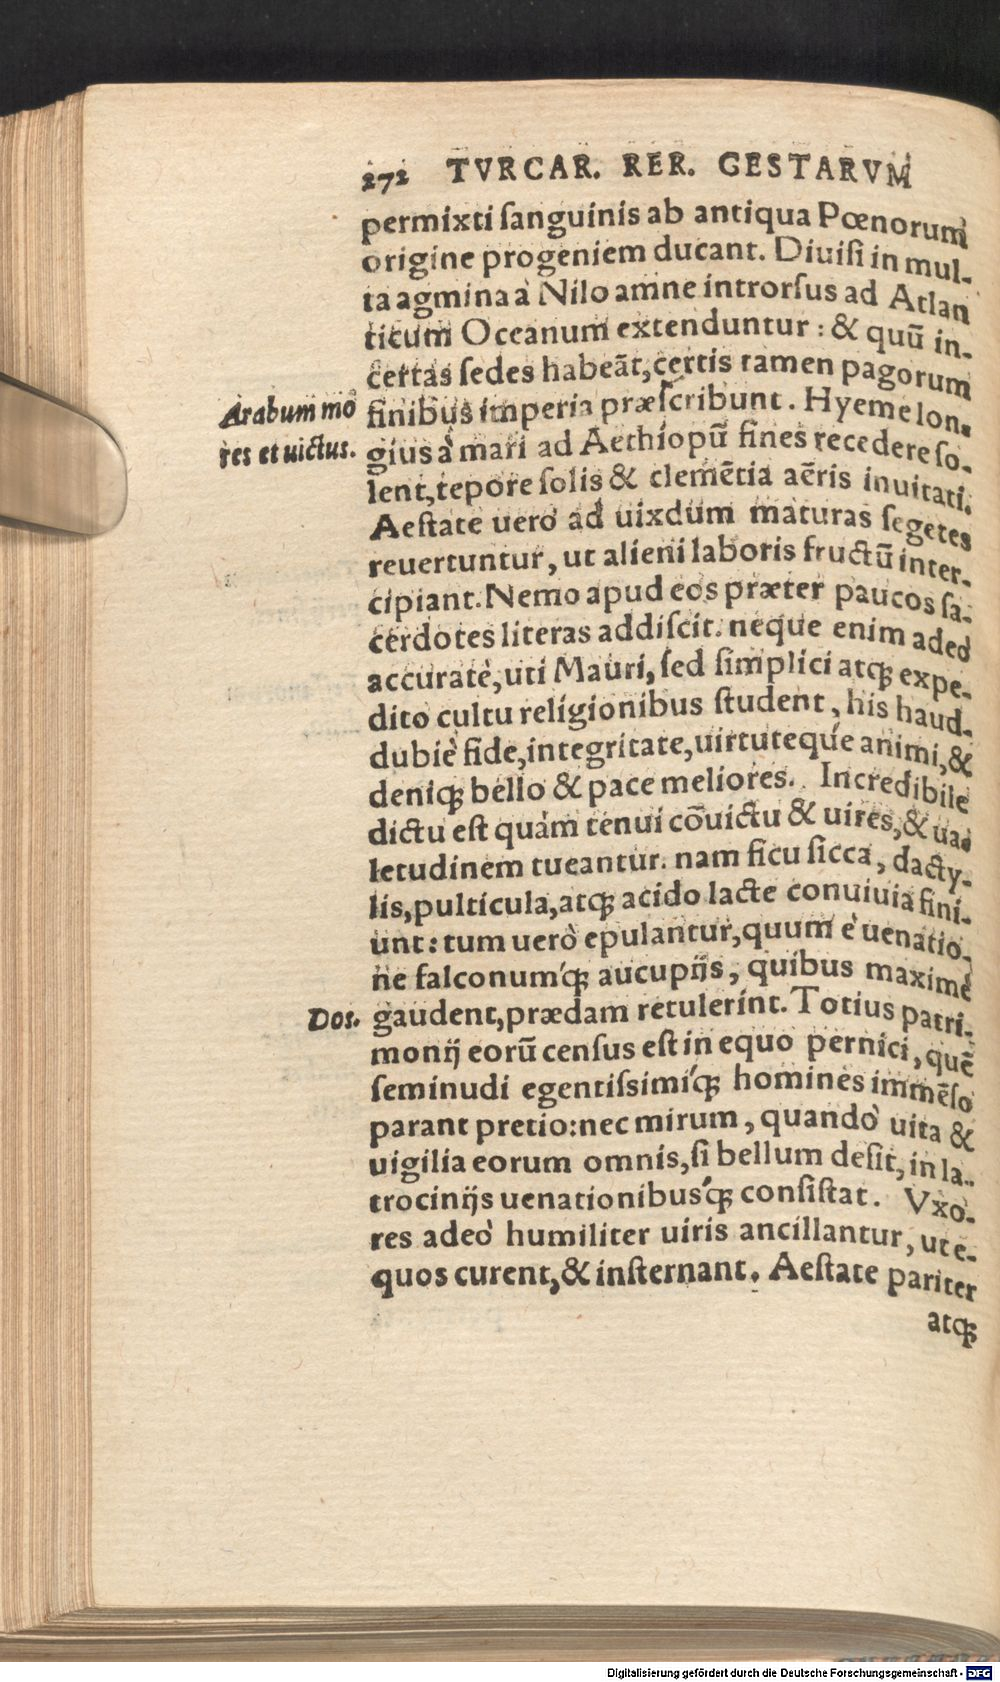 272 TVRCAR. RER. GESTARVM
permixti ſanguinis ab antiqua Pœnorum
origine progeniem ducant. Diuiſi in mul-
ta agmina à Nilo amne introrſus ad Atlan
ticum Oceanum extenduntur: & quū in-
certas ſedes habeāt, certis tamen pagorum
Arabum mo
finibus imperia præſcribunt. Hyeme lon-
res et uictus.
gius à mari ad Aethiopū fines recedere ſo-
lent, tepore ſolis & clemētia aëris inuitati.
Aeſtate uerò ad uixdum maturas ſegetes
reuertuntur, ut alieni laboris fructū inter-
cipiant. Nemo apud eos præter paucos ſa-
cerdotes literas addiſcit. neque enim adeò
accuratè, uti Mauri, ſed ſimplici atqꝫ expe-
dito cultu religionibus ſtudent, his haud-
dubiè fide, integritate, uirtutequé animi, &
deniqꝫ bello & pace meliores. Incredibile
dictu eſt quàm tenui cōuictu & uires, & ua-
letudinem tueantur. nam ficu ſicca, dacty-
lis, pulticula, atqꝫ acido lacte conuiuia fini-
unt: tum uerò epulantur, quum è uenatio-
ne falconuḿqꝫ aucupijs, quibus maximè
Dos.
gaudent, prædam retulerint. Totius patri-
monij eorū cenſus eſt in equo pernici, quē
ſeminudi egentiſsimíqꝫ homines immēſo
parant pretio: nec mirum, quandò uita &
uigilia eorum omnis, ſi bellum deſit, in la-
trocinijs uenationibuś qꝫ conſiſtat. Vxo-
res adeò humiliter uiris ancillantur, ut e-
quos curent, & inſternant. Aeſtate pariter
atqꝫ
Digitalisierung gefördert durch die Deutsche Forschungsgemeinschaft - DFG